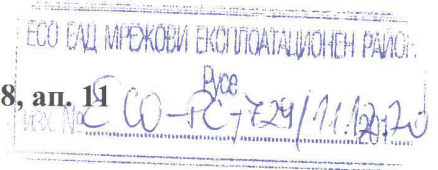 ЕСО ЕАД МРЕЖОВИ ЕКСПЛОАТАЦИОНЕН РАЙОН
Русе
8, ап. 11
№ ЕСО-РС-729/11.12.